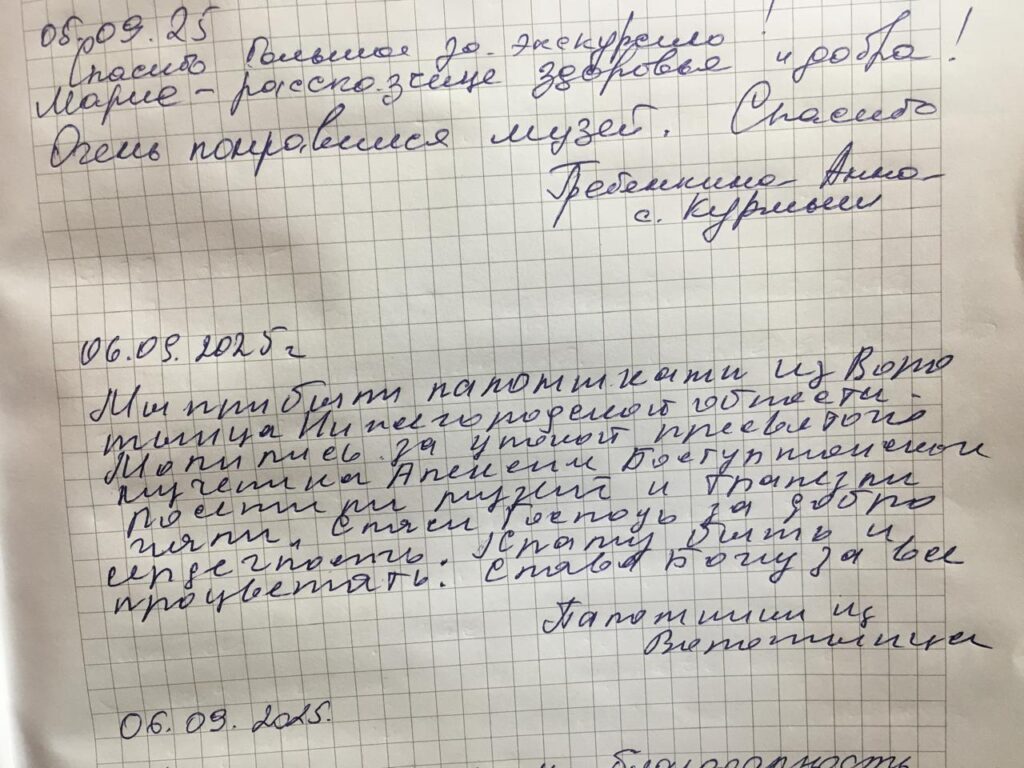 05.09.25
Спасибо большое за экскурсию!
Марие - рассказчице здоровья и добра!
Очень понравился музей. Спасибо
Гребенкина Анна
с. Курмыш
06.09.2025 г
Мы прибыли паломниками из
Нижегородской области.
Молились за упокой пресвятого
мученика Алексии
посетили музей и трапезни
чали. Спаси Господь за добро
сердечность. Храму быть и
процветать. Слава Богу за все
Паломники из
06.09.2025.
благодарность